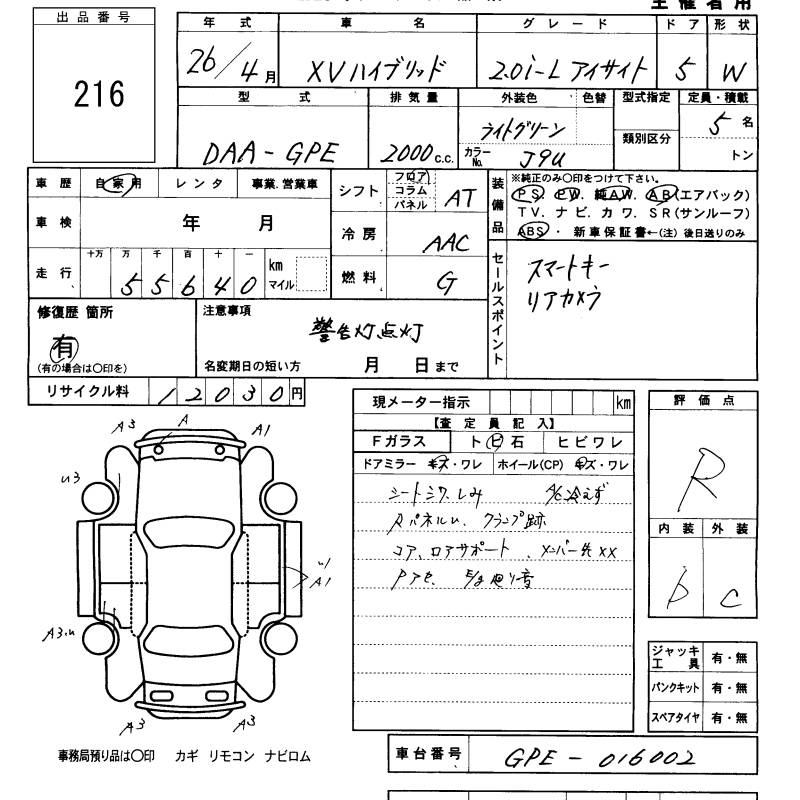 主催者用
出品番号
216
年式 車名 グレード ドア 形状
26/4月 XVハイブリッド 2.0i-L アイサイト 5 W
型式 排気量 外装色 色替 型式指定 定員・積載
DAA-GPE 2000c.c. ライトグリーン 5名
カラーNo. J9U 類別区分 トン
車歴 自家用 レンタ 事業.営業車
シフト フロア コラム パネル AT
装備品 ※純正のみ○印をつけて下さい。
PS. PW. 純AW. AB(エアバック)
TV. ナビ. カワ. SR(サンルーフ)
ABS・ 新車保証書←(注)後日送りのみ
車検 年 月
冷房 AAC
走行 十万 万 千 百 十 一
55640 km マイル
燃料 G
セールスポイント スマートキー
リアカメラ
修復歴 箇所
有
(有の場合は○印を)
注意事項
警告灯点灯
名変期日の短い方 月 日まで
リサイクル料 12030円
現メーター指示 km
【査定員記入】
Fガラス トビ石 ヒビワレ
ドアミラー キズ・ワレ ホイール(CP) キズ・ワレ
シートシワ.しみ A/C冷えず
Rパネルu. クランプ跡
コア、ロアサポート、メンバー先XX
評価点
R
内装 外装
C
A3 A A1
u3
A1
A3.u
A3 A3
ジャッキ工具 有・無
パンクキット 有・無
スペアタイヤ 有・無
事務局預り品は○印 カギ リモコン ナビロム
車台番号 GPE-016002